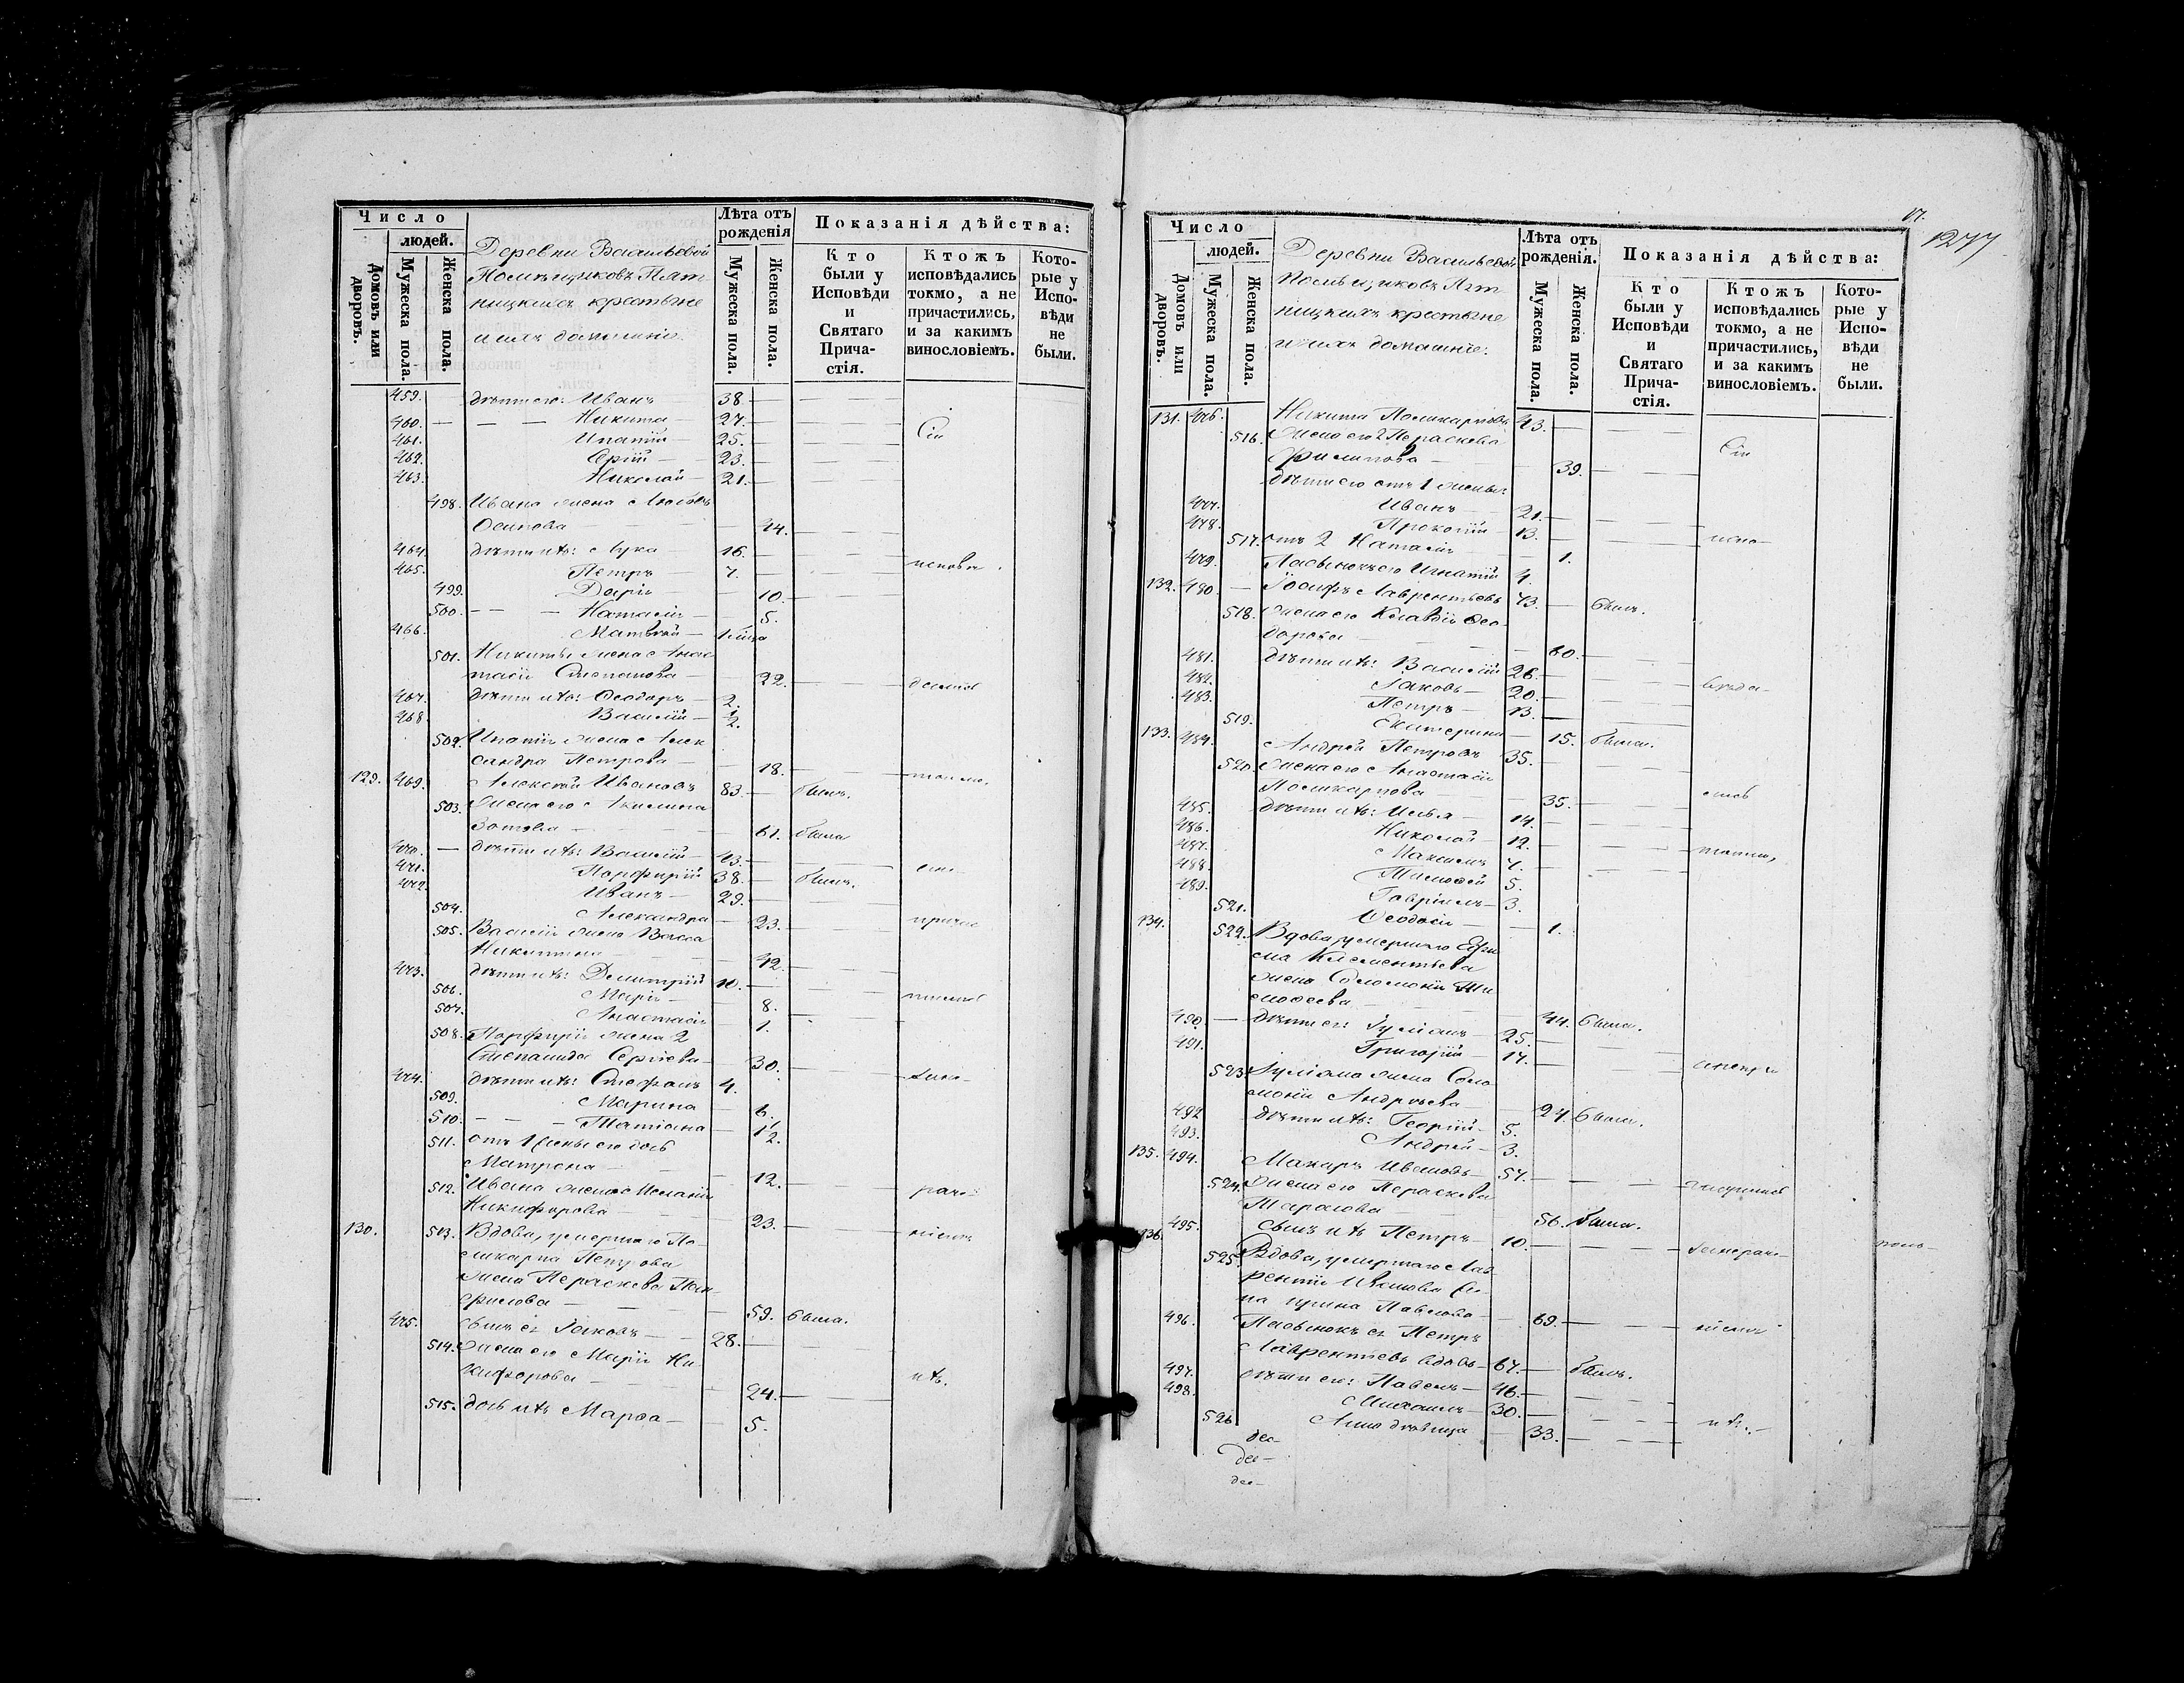 Число
людей.
Домовъ или дворовъ.
Мужеска пола.
Женска пола.
Деревни Васильевой
Помѣщиковъ Пят-
ницкихъ крестьяне
и ихъ домашніе.
Лѣта отъ рожденія
Мужеска пола.
Женска пола.
Показанія дѣйства:
Кто были у Исповѣди и Святаго Прича-стія.
Ктожъ исповѣдались токмо, а не причастились, и за какимъ винословіемъ.
Кото-рые у Испо-вѣди не были.
459. дѣти его: Иванъ 38.
460. Никита 27.
461. Ипатій 25. Сіи
462. Сергій 23.
463. Николай 21.
498. Ивана жена Любовь
Осипова 44.
464. дѣти ихъ: Лука 16.
465. Петръ 7. исповѣ
499. Дарія 10.
500. Наталія 5.
466. Матѳей
501. Никиты жена Анас-
тасія Степанова 22.
467. дѣти ихъ: Ѳеодоръ 2.
468 Василій ½.
502. Ипатія жена Алек
сандра Петрова 18. токмо,
129. 469. Алексѣй Ивановъ 83. былъ.
503. жена его Акилина
Зотова 61. была
470. дѣти ихъ: Василій 43.
471. Порфирій 38. былъ.
472 Иванъ 29.
504. Александра 23. прича
505. Василія жена Васса
Никитина 42.
473. дѣти ихъ: Димитрій 10.
506. Марія 8.
507. Анастасія 1.
508. Порфирія жена 2
Степанида Сергіева 30.
474. дѣти ихъ: Стефанъ 4.
509. Марина 6.
510. Татіана ½.
511. отъ 1 жены его дочь
Матрона 12.
512. Ивана жена Меланія
Никифорова 23.
130. 513. Вдова, умершаго По-
ликарпа Петрова
жена Параскева Пан-
филова 59. была.
475. сынъ ея Іаковъ 28.
514. жена его Марія Ни-
кифорова 24. ихъ.
515. дочь ихъ Марѳа 5.
17.
1277
Число
людей.
Домовъ или дворовъ.
Мужеска пола.
Женска пола.
Деревни Васильевой
Помѣщиковъ Пят-
ницкихъ крестьяне
и ихъ домашніе:
Лѣта отъ рожденія.
Мужеска пола.
Женска пола.
Показанія дѣйства:
Кто были у Исповѣди и Святаго Прича-стія.
Ктожъ исповѣдались токмо, а не причастились, и за какимъ винословіемъ.
Кото-рые у Испо-вѣди не были.
131. 476. Никита Поликарповъ 43.
516. жена его 2 Параскева Сіи
Филипова 39.
дѣти его отъ 1 жены:
477. Иванъ 21.
478. Прокопій 13.
517. отъ 2 Наталія 1. испо-
479. Пасынокъ его Игнатій 4.
132. 480. Іосифъ Лаврентьевъ 73. былъ.
518. жена его Клавдія Ѳео-
дорова 60.
481. дѣти ихъ: Василій 26.
482. Іаковъ 20. вѣда-
483. Петръ 13.
519. Екатерина 15. была.
133. 484. Андрей Петровъ 35.
520. жена его Анастасія
Поликарпова 35. лись
485. дѣти ихъ: Илья 14.
486. Николай 12.
487. Максимъ 7. токмо,
488. Тимоѳей 5.
489. Гавріилъ 3.
521. Ѳеодосія 1.
134. 522. Вдова, умершаго Ефи
ма Клементьева
жена Соломонія Ти
моѳеева 44. была.
490. дѣти ея: Іуліанъ 25.
491. Григорій 17.
523. Іуліана жена Соло
монія Андреева 24. была.
492 дѣти ихъ: Георгій 5.
493. Андрей 3.
135. 494. Макаръ Ивановъ 57.
524. жена его Параскева
Тарасова 56. была.
495. сынъ ихъ Петръ 10.
136. 525. Вдова, умершаго Лав-
рентія Иванова же-
на Ирина Павлова 69.
496. Пасынокъ ея Петръ
Лаврентіевъ вдовъ 67. былъ.
497. дѣти его: Павелъ 46.
498. Михаилъ 30.
526 Анна дѣвица 33. ихъ.